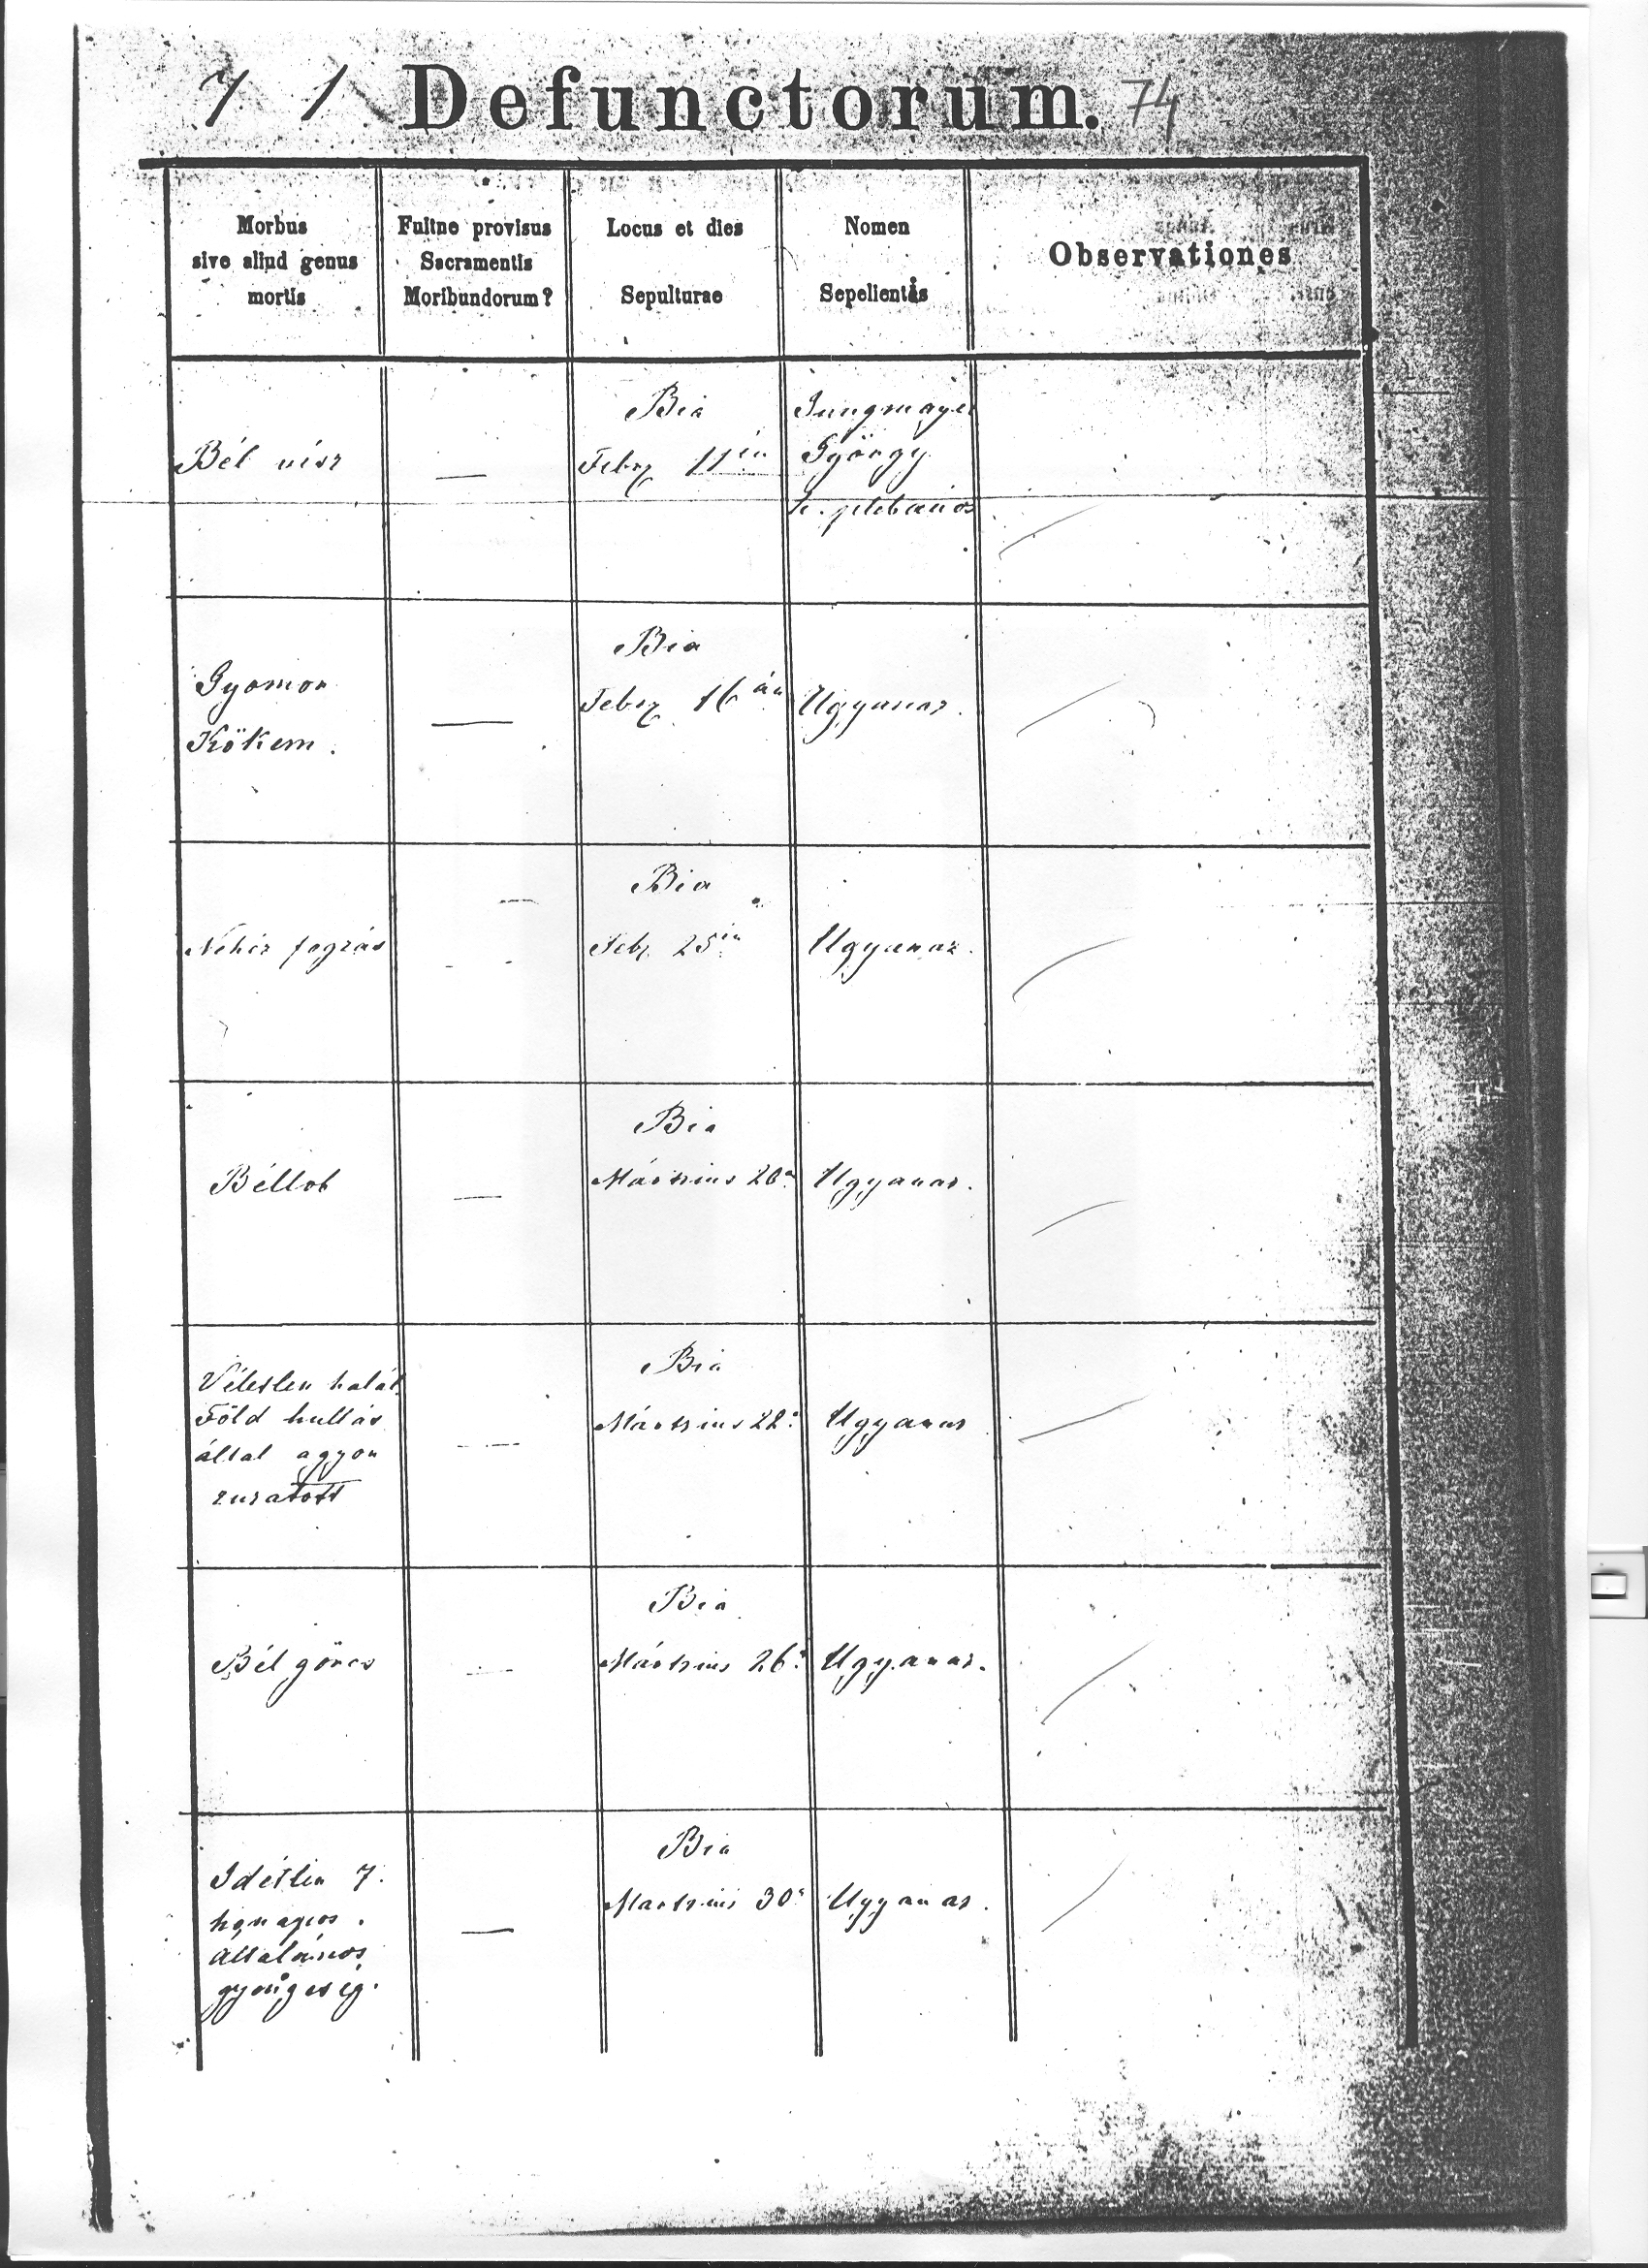 7 1 Defunctorum. 74
Morbus
sive aliud genus
mortis
Fuitne provisus
Sacramentis
Moribundorum?
Locus et dies
Sepulturae
Nomen
Sepelientis
Observationes
Bél vész
—
Bia
Febr 11én
Jungmayer
György
h. plebános
Gyomor
Kökem.
—
Bia
Febr 16án
Ugyanaz.
Nehéz fogzás
—
Bia
Febr 25én
Ugyanaz.
Béllob
—
Bia
Mártzius 20n
Ugyanaz.
Véletlen halál
Föld hullás
által agyon
zuzatott
—
Bia
Mártzius 22n
Ugyanaz
Bél görcs
—
Bia
Mártzius 26n
Ugyanaz.
Idétlen 7.
hónapos.
általános
gyöngeség.
—
Bia
Martzius 30n
Ugyanaz.